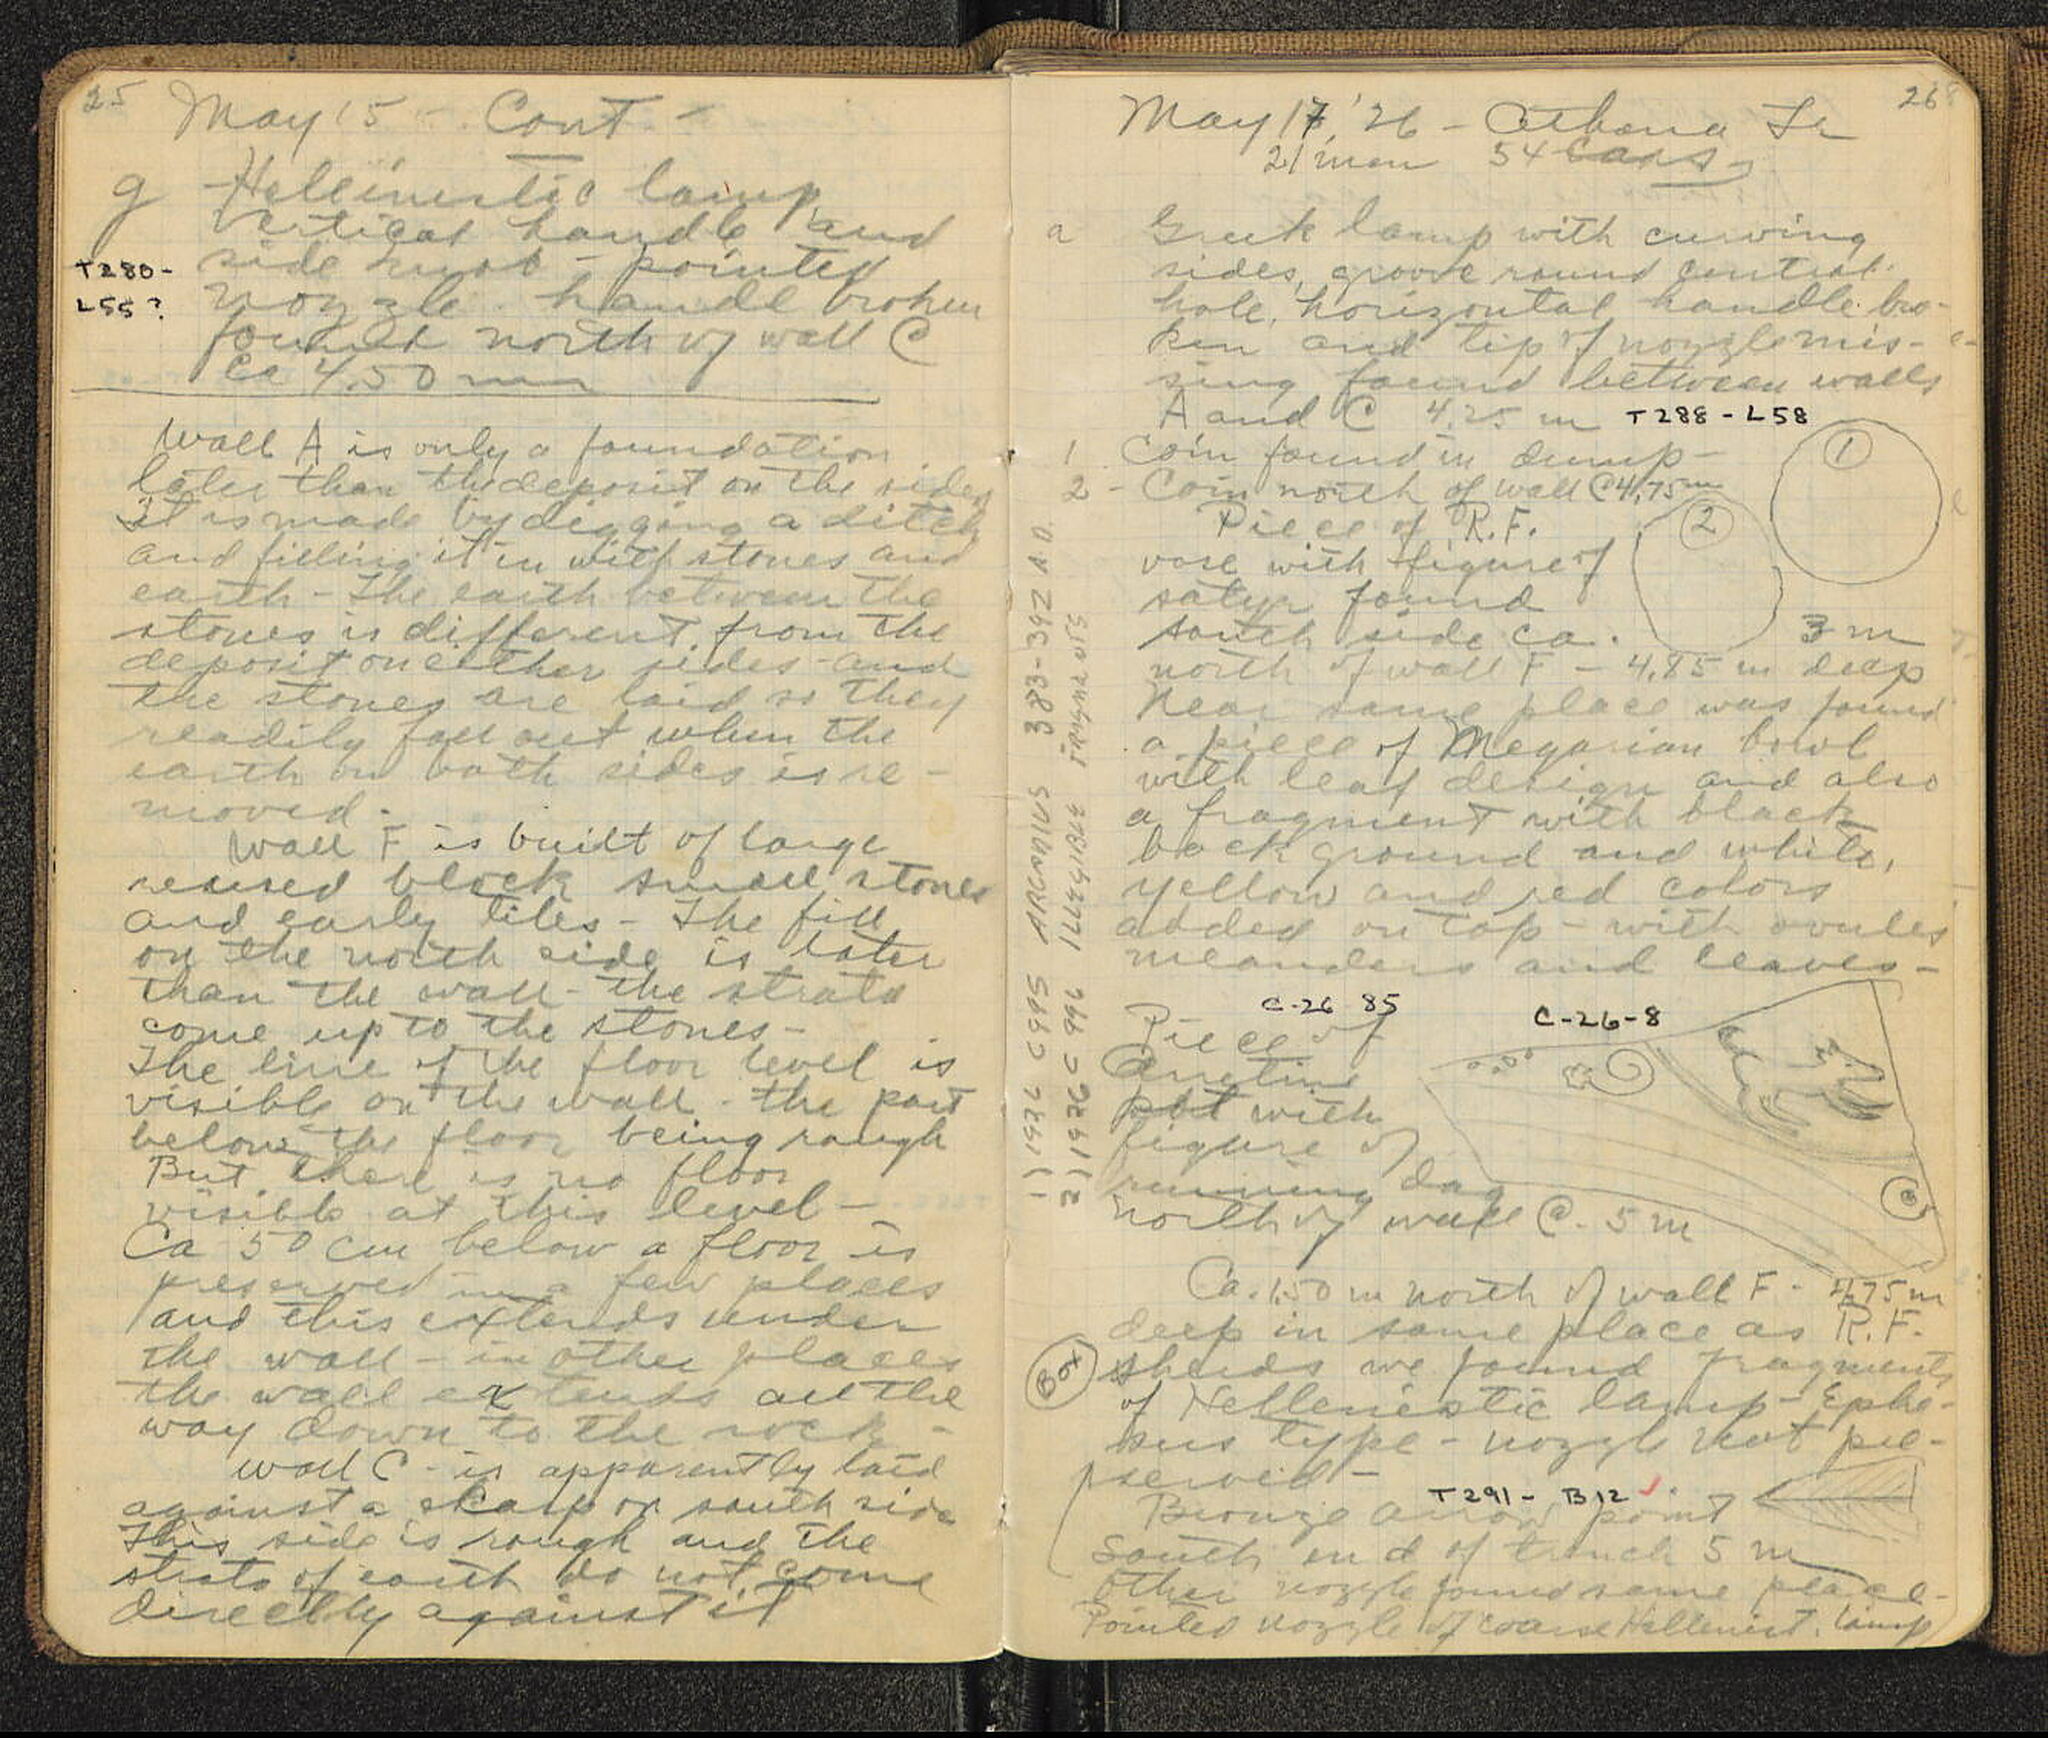 25
May 15 - Cont. -
g Hellinestic lamp,
vertical handle and
side knob - pointed
T280-
L55?
nozzle. handle broken
found north of wall C
Ca 4.50 m
Wall A is only a foundation
later than the deposit on the sides
It is made by digging a ditch
and filling it in with stones and
earth - The earth between the
stones is different from the
deposit on either sides - and
the stones are laid so they
readily fall out when the
earth on both sides is re-
moved.
Wall F is built of large
reused block small stones
and early tiles - The fill
on the north side is later
than the wall - the strata
come up to the stones -
The line of the floor level is
visible on the wall - the part
below the floor being rough
But there is no floor
visible at this level -
Ca 50 cm below a floor is
preserved in a few places
and this extends under
the wall - in other places
the wall extends all the
way down to the rock -
Wall C - is apparently laid
against a scarp on south side
This side is rough and the
strata of earth do not come
directly against it
26
May 17, '26 - Athena Tr
21 men 54 cars
a Greek lamp with curving
sides, groove round central
hole, horizontal handle bro-
ken and tip of nozzle mis-
sing found between walls
A and C 4.25 m T288 - L58
1 Coin found in dump -
2 - Coin north of wall C 4.75 m
1
2
Piece of R.F.
vase with figure of
satyr found
south side ca. 3 m
north of wall F - 4.85 m deep
Near same place was found
a piece of Megarian bowl
with leaf design and also
a fragment with black
background and white,
yellow and red colors
added on top - with ovules
meanders and leaves -
C-26-85
C-26-8
Piece of
Arretine
pot with
figure of
running dog
north of wall C. 5 m
Ca. 1.50 m north of wall F - 4.75 m
deep in same place as R.F.
Box
sherds we found fragments
of Hellenestic lamp - Ephe-
sus type - nozzle not pre-
served -
T291 - B12
Bronze arrow point
South end of trench 5 m
Other nozzle found same place -
Pointed nozzle of coarse Hellenist. lamp
1) 1926 C 995 ARCADIUS 383-392 A.D.
2) 1926 C 996 ILLEGIBLE FRAGMENTS